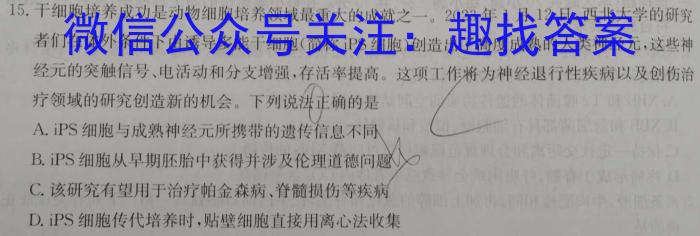 15. 干细胞培养成功是动物细胞培养领域最重大的成就之一。2023年1月12日,西北大学的研究
微信公众号关注:趣找答案
者们 诱导多能干细胞( iPS细胞)创造出 度成熟的人类神经元,这些神
经元的突触信号、电活动和分支增强,存活率提高。这项工作将为神经退行性疾病以及创伤治
疗领域的研究创造新的机会。下列说法正确的是
A. iPS细胞与成熟神经元所携带的遗传信息不同
B. iPS细胞从早期胚胎中获得并涉及伦理道德问题
C. 该研究有望用于治疗帕金森病、脊髓损伤等疾病
D. iPS细胞传代培养时,贴壁细胞直接用离心法收集